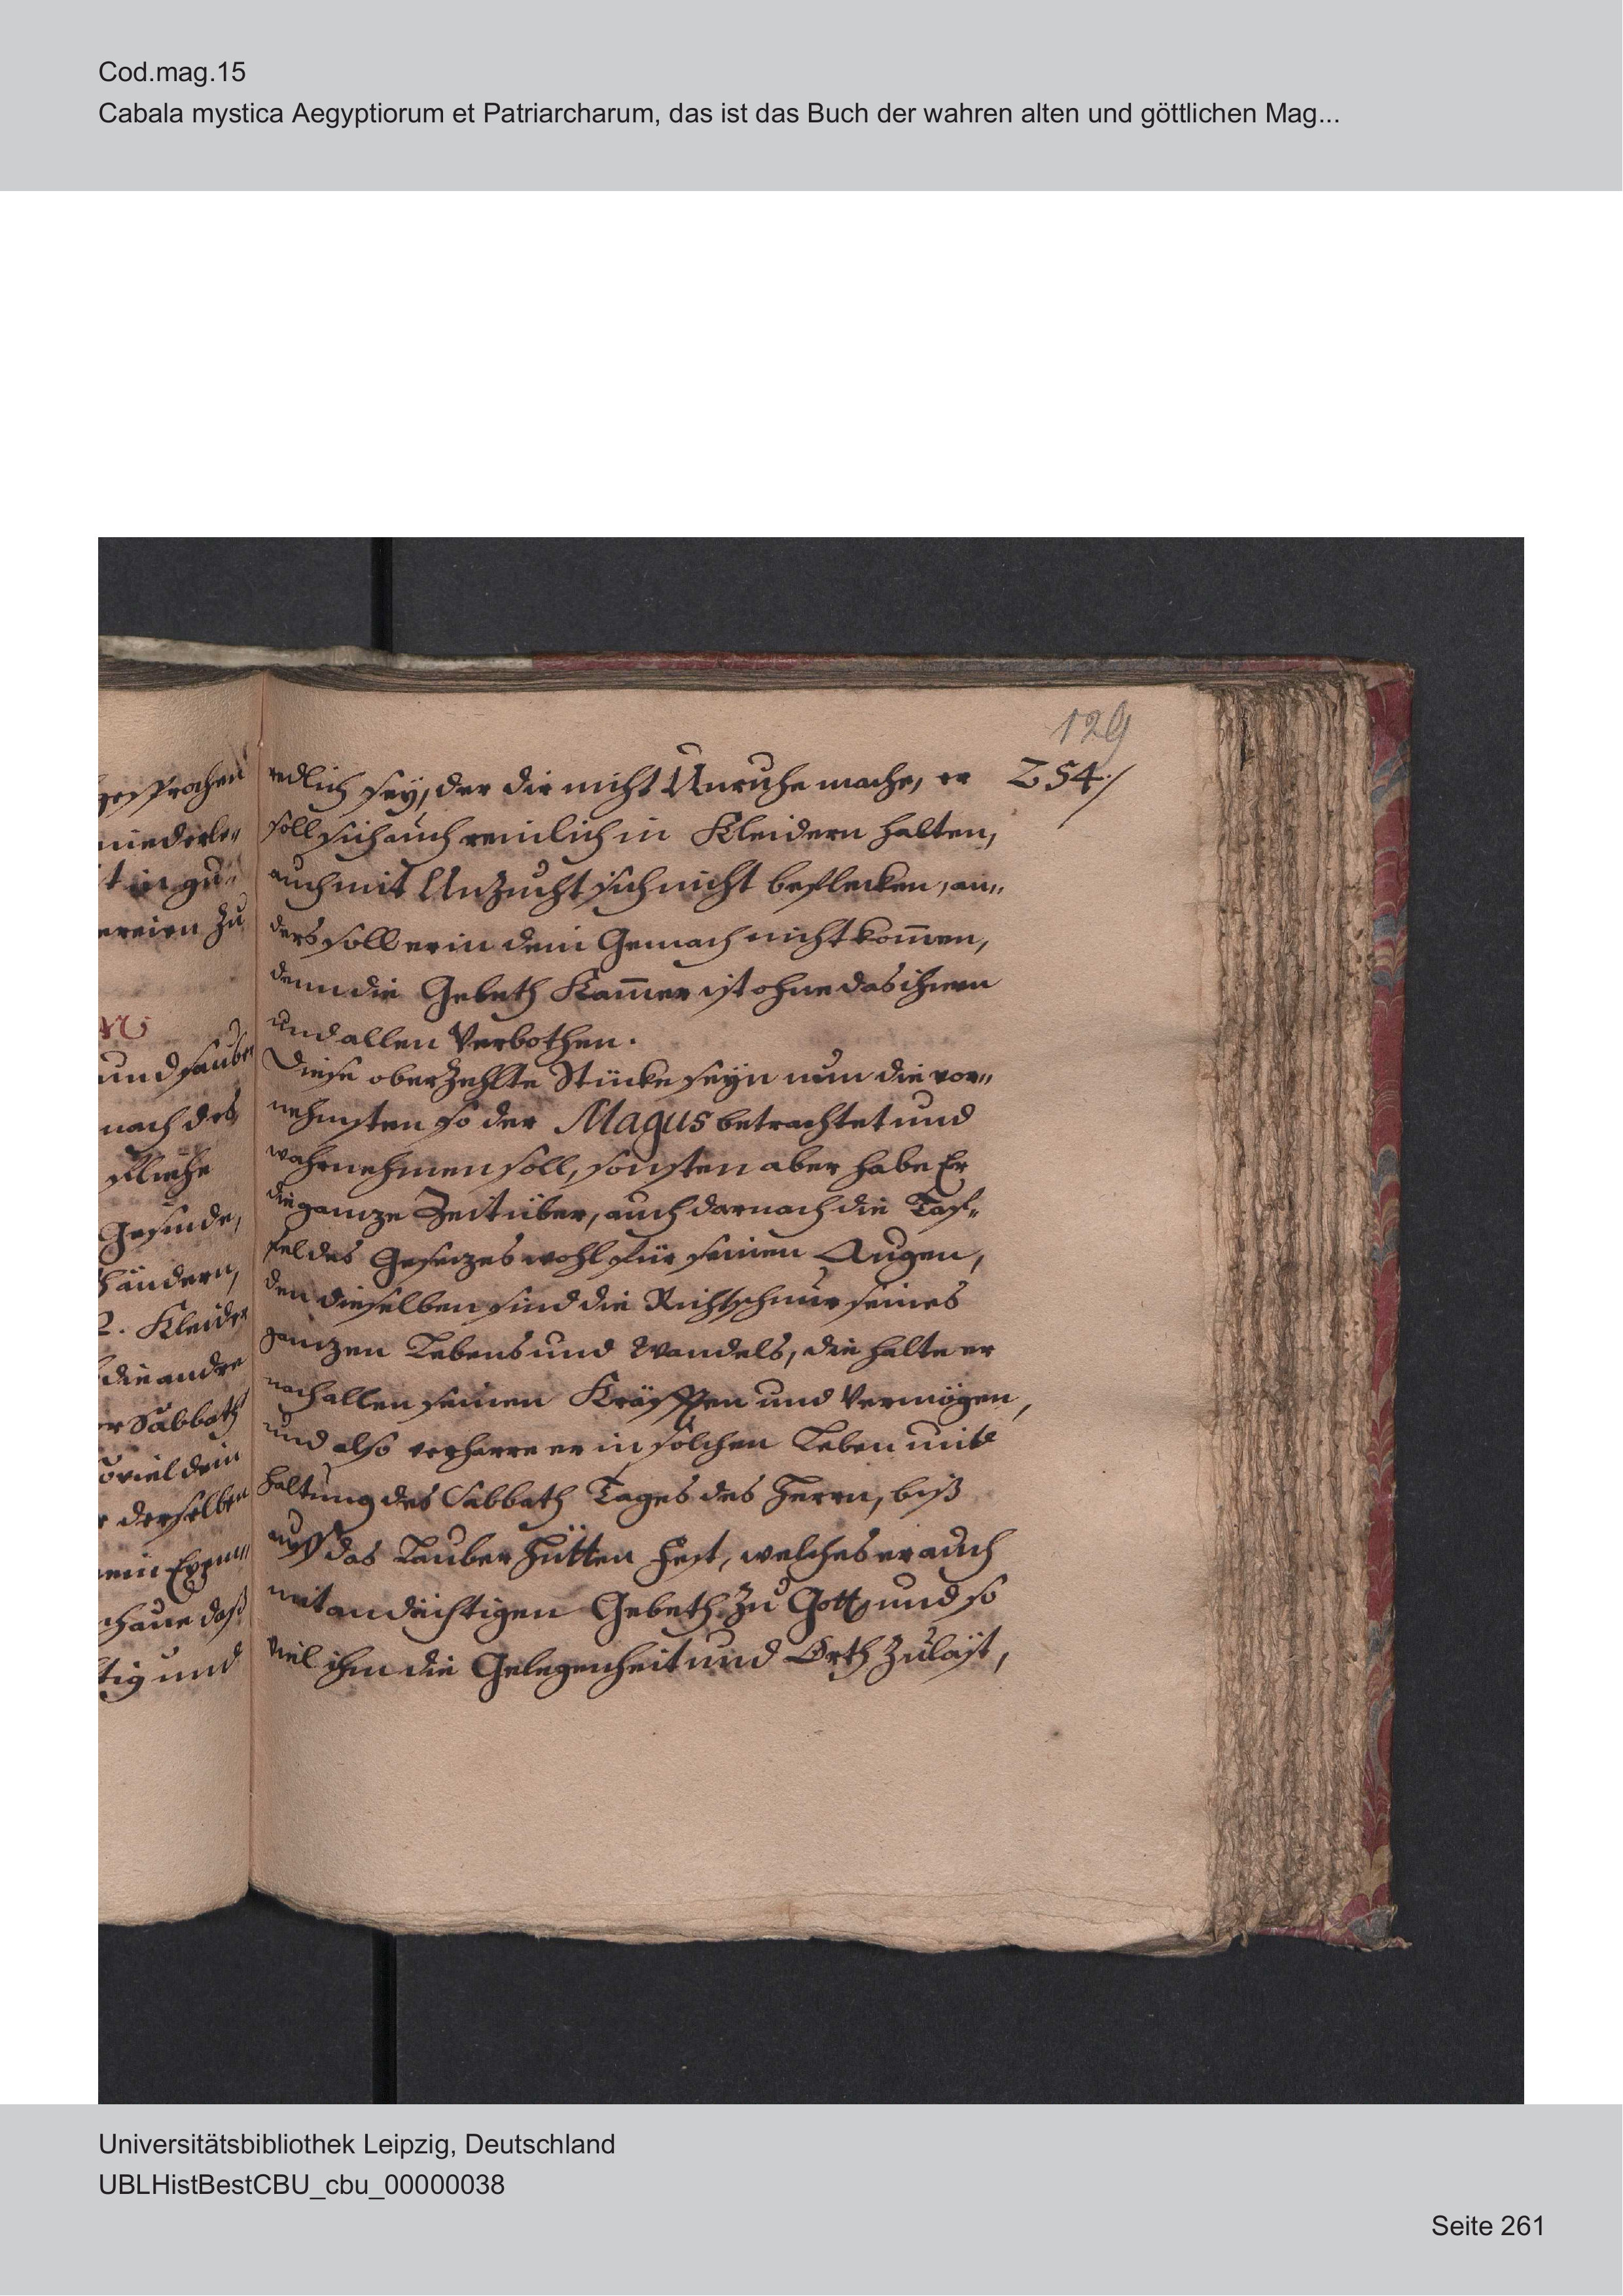 Cod.mag.15
Cabala mystica Aegyptiorum et Patriarcharum, das ist das Buch der wahren alten und göttlichen Mag...
129
254./
gesprochen
niederle„
t in gu„
zu
und sauber
nach des
fliehe
Gesinde,
händern,
2. Kleider
die andre
er Sabbath
soviel dein
derselben
mein Exem„
schaue daß
tig und
redlich sey, der dir nicht Unruhe mache, er
soll sich auch reinlich in Kleidern halten,
auch mit Unzucht sich nicht beflecken, an„
ders soll er in dein Gemach nicht kom̄en,
denn die Gebeth Kam̄er ist ohne das ihnen
und allen Verbothen.
Diese oberzehlte Stücke seyn nun die vor„
nehmsten so der Magus betrachtet und
wahrnehmen soll, sonsten aber habe Er
die ganze Zeit über, auch darnach die Taf„
fel des Gesezes wohl für seinen Augen,
den dieselben sind die Richtschnur seines
ganzen Lebens und Wandels, die halte er
nach allen seinen Kräfften und Vermögen,
und also verharre er in solchen Leben mit
haltung des Sabbath Tages des Herrn, biß
auff das Lauber Hütten Fest, welches er auch
mit andächtigen Gebeth zu Gott und so
viel ihm die Gelegenheit und Orth zuläst,
Universitätsbibliothek Leipzig, Deutschland
UBLHistBestCBU_cbu_00000038
Seite 261